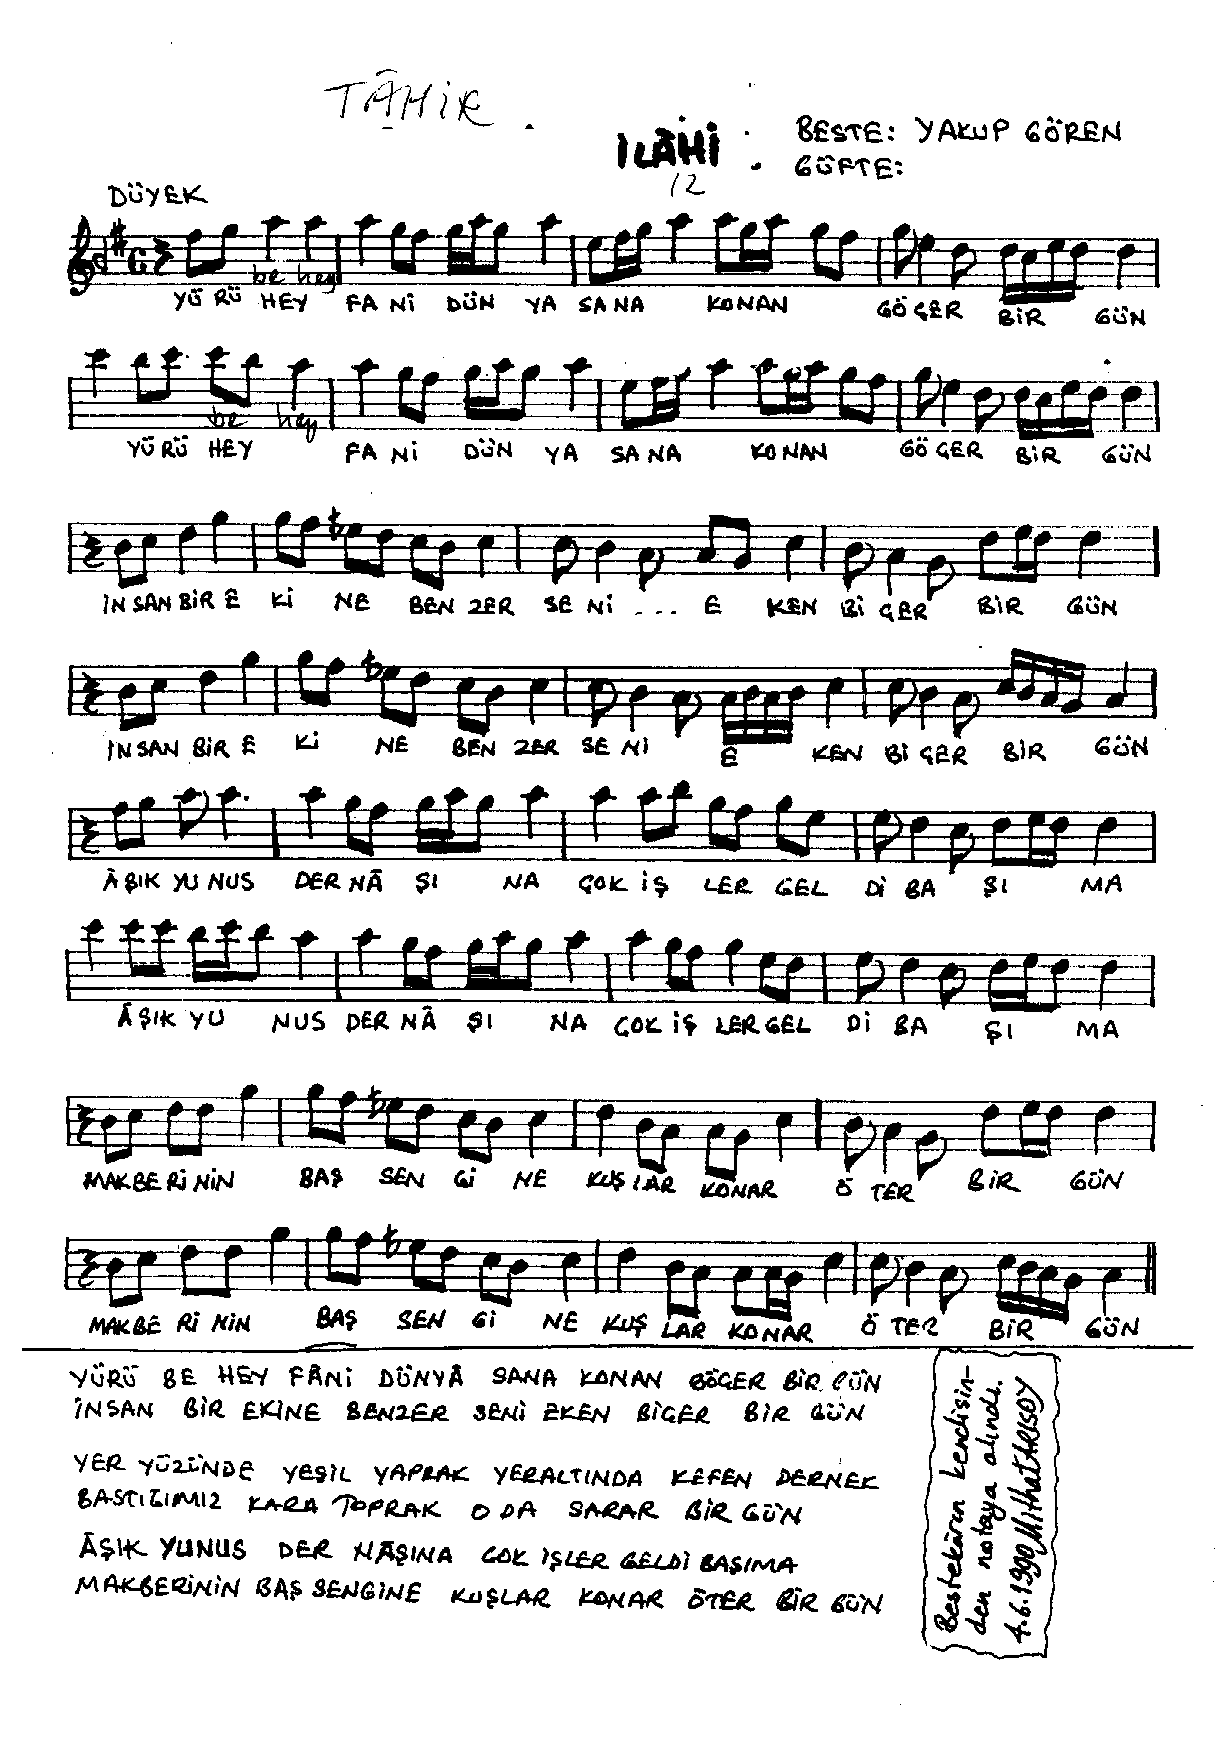 TÂHİR
İLÂHİ
12
BESTE: YAKUP GÖREN
GÜFTE:
DÜYEK
be hey
YÜRÜ HEY FA Nİ DÜN YA SA NA KONAN GÖÇER BİR GÜN
be hey
YÜRÜ HEY FA Nİ DÜN YA SA NA KO NAN GÖ ÇER BİR GÜN
İN SAN BİR E Kİ NE BEN ZER SE Nİ ... E KEN Bİ ÇER BİR GÜN
İN SAN BİR E Kİ NE BEN ZER SE Nİ E KEN Bİ ÇER BİR GÜN
ÂŞIK YU NUS DER NÂ ŞI NA ÇOK İŞ LER GEL Dİ BA ŞI MA
ÂŞIK YU NUS DER NÂ ŞI NA ÇOK İŞ LER GEL Dİ BA ŞI MA
MAKBE Rİ NİN BAŞ SEN Gİ NE KUŞ LAR KONAR Ö TER BİR GÜN
MAKBE Rİ NİN BAŞ SEN Gİ NE KUŞ LAR KONAR Ö TER BİR GÜN
YÜRÜ BE HEY FÂNİ DÜNYÂ SANA KONAN GÖÇER BİR GÜN
İNSAN BİR EKİNE BENZER SENİ EKEN BİÇER BİR GÜN
YER YÜZÜNDE YEŞİL YAPRAK YERALTINDA KEFEN DERNEK
BASTIĞIMIZ KARA TOPRAK O DA SARAR BİR GÜN
ÂŞIK YUNUS DER NÂŞINA ÇOK İŞLER GELDİ BAŞIMA
MAKBERİNİN BAŞ SENGİNE KUŞLAR KONAR ÖTER BİR GÜN
Bestekârın kendisin-
den notaya alındı.
4.6.1990 Mithat ARISOY